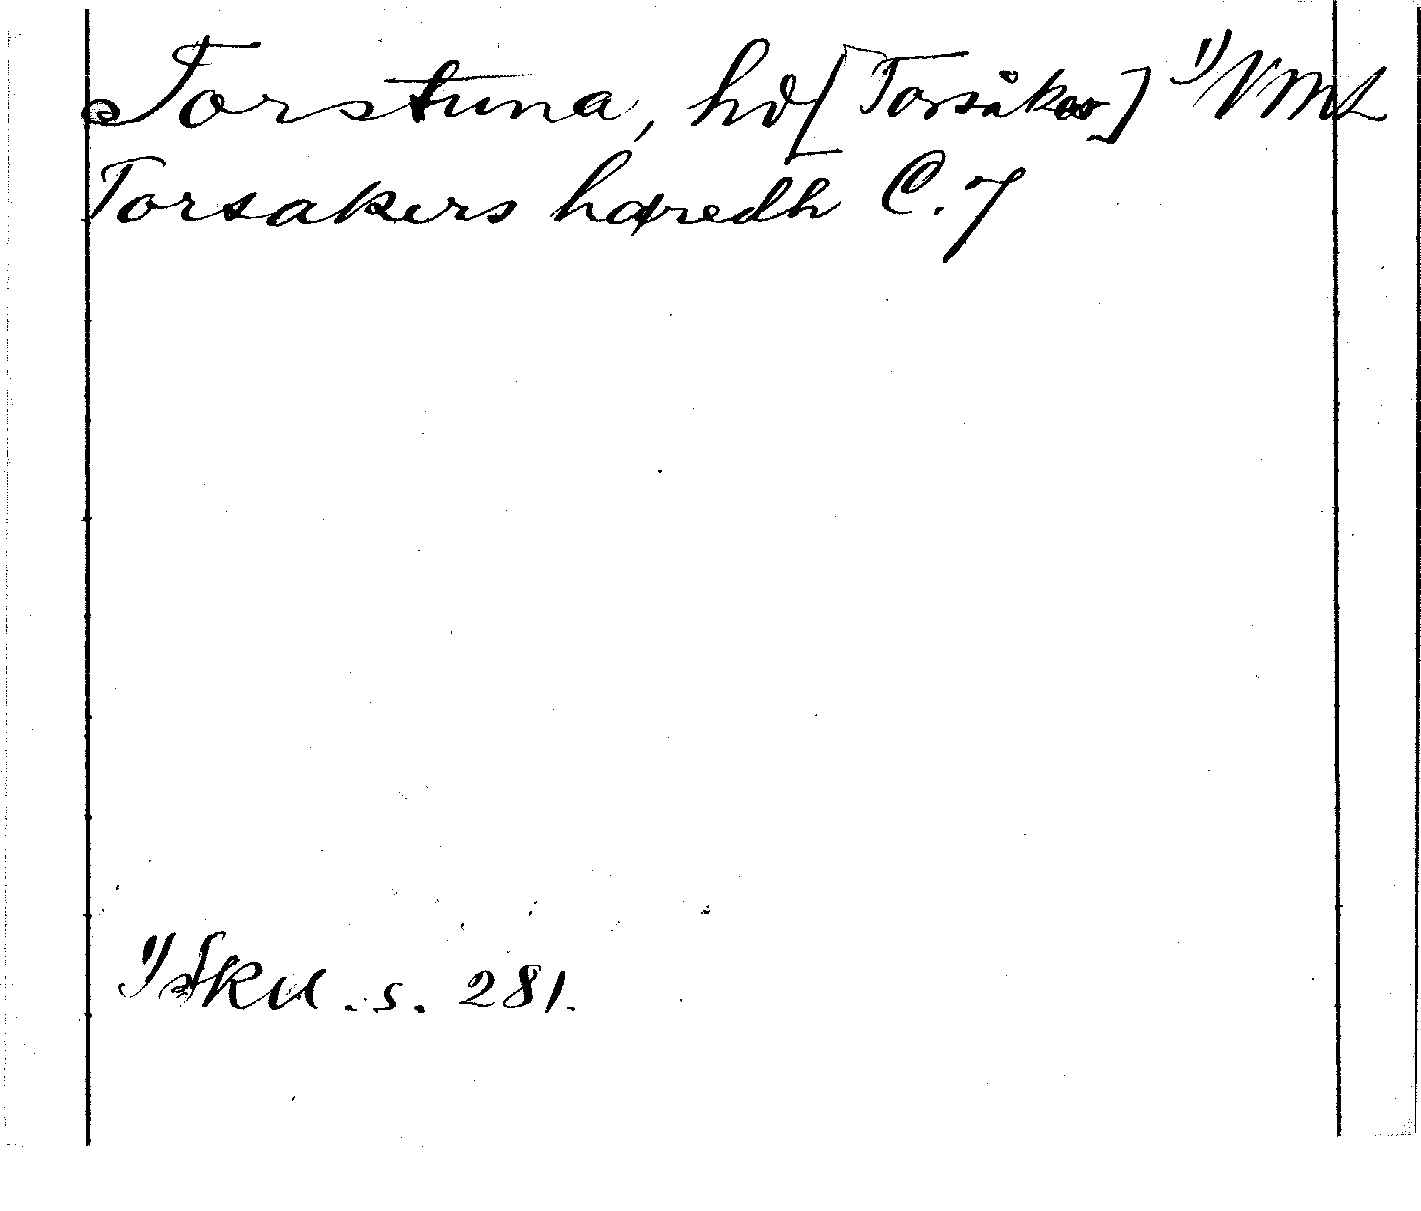 Torstuna, hd [Torsåker] 1) VML
Torsakers haredh C. 7
1) SRU. s. 281.